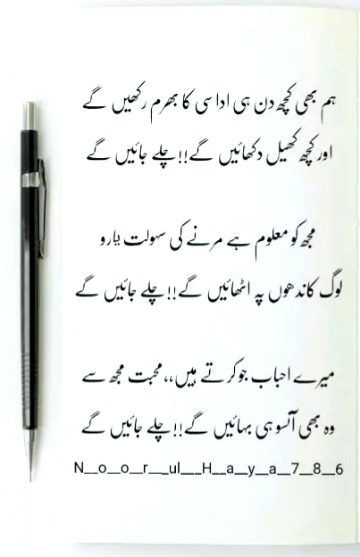 ہم بھی کچھ دن ہی اداسی کا بھرم رکھیں گے
اور کچھ کھیل دکھائیں گے!! چلے جائیں گے
مجھ کو معلوم ہے مرنے کی سہولت یارو
لوگ کاندھوں پہ اٹھائیں گے!! چلے جائیں گے
میرے احباب جو کرتے ہیں،، محبت مجھ سے
وہ بھی آنسو ہی بہائیں گے!! چلے جائیں گے
N__o__o__r__ul__H__a__y__a__7__8__6